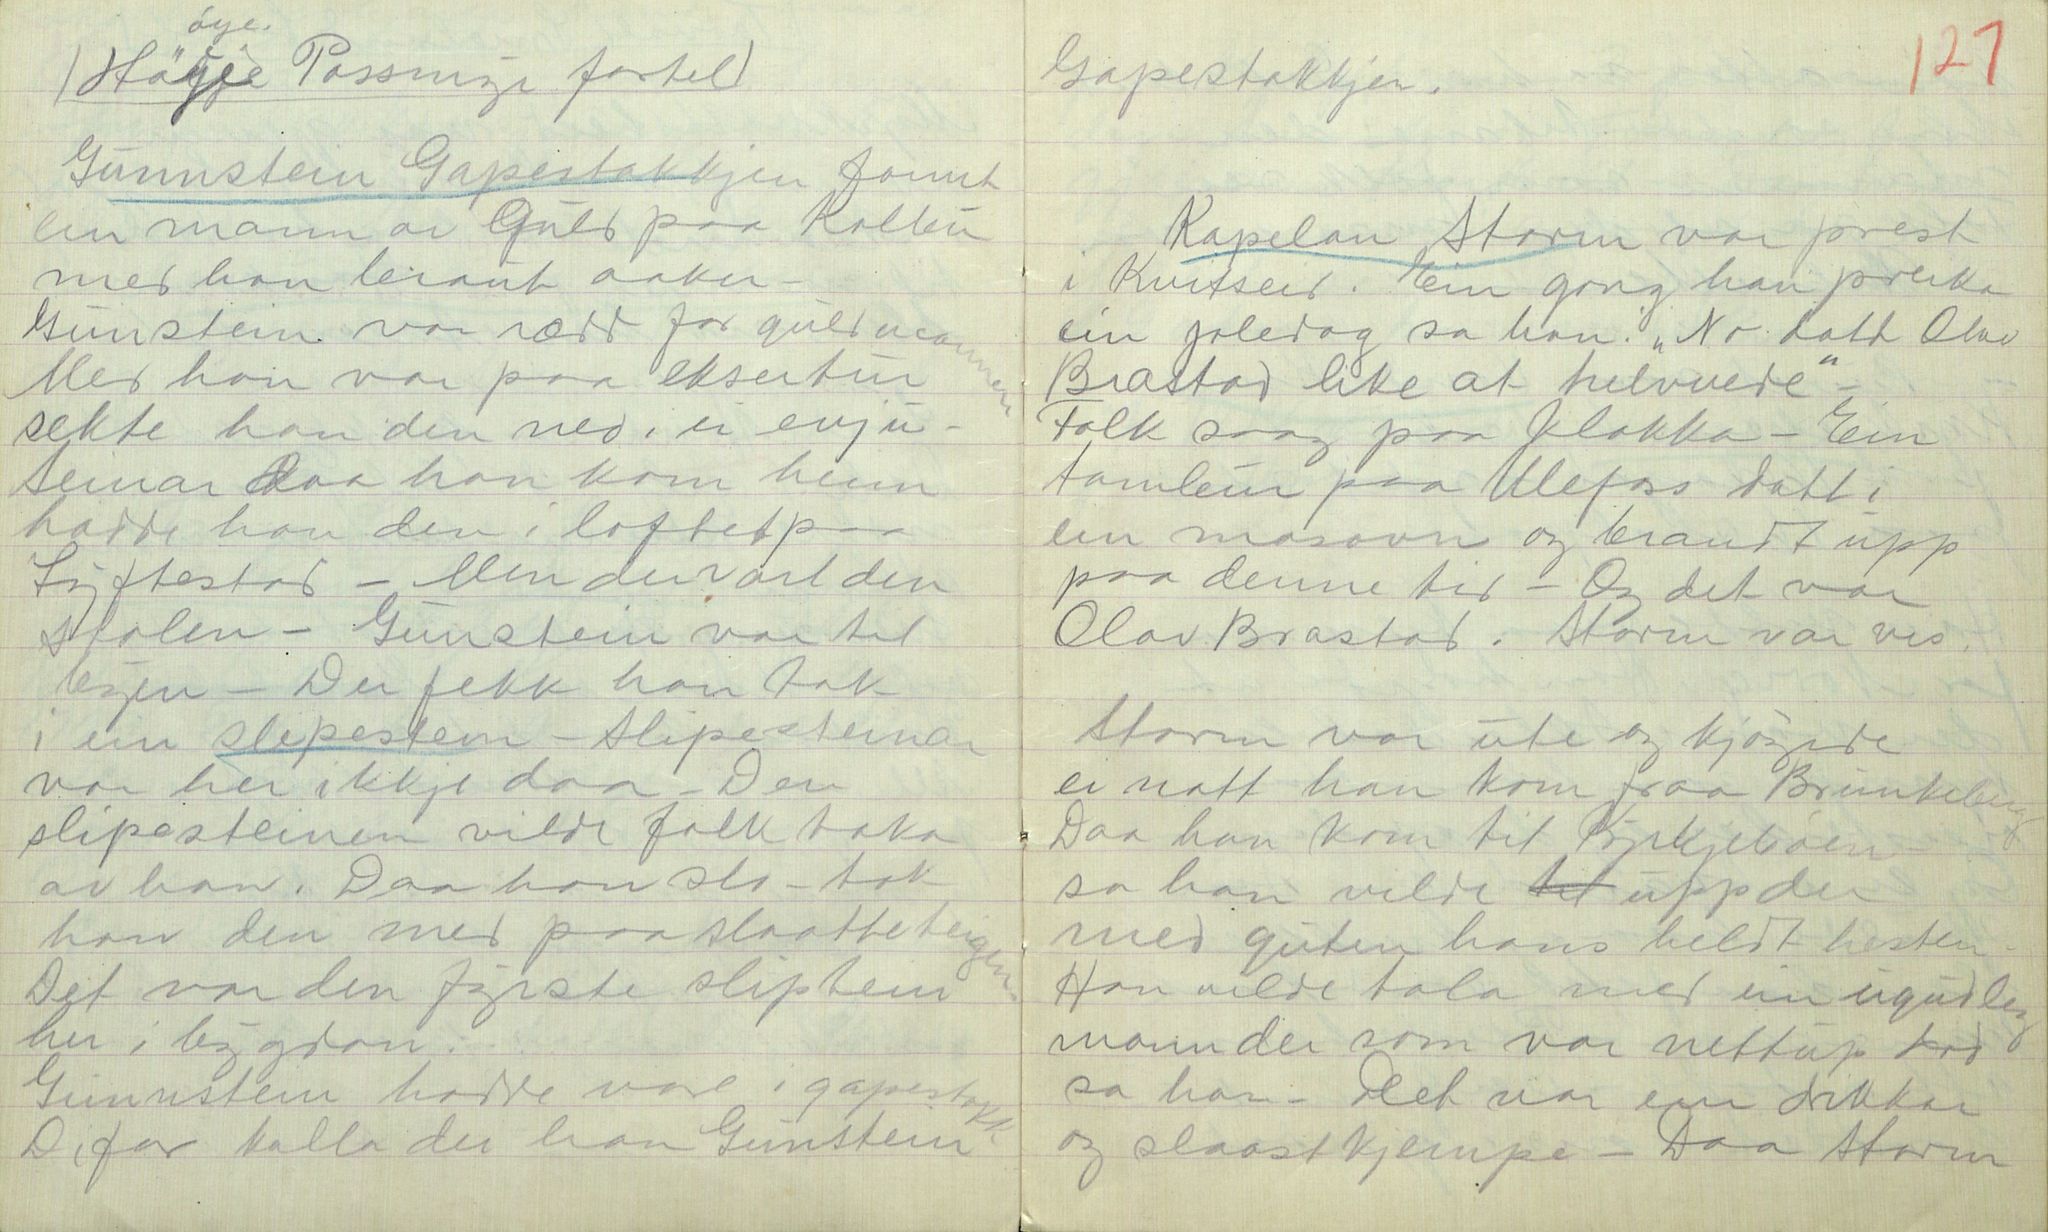 øye.
(Høgje Possmyr fortel)
Gunnstein Gapestokkjen fonnt
ein mann av Guld paa Kolltu
med han braut aaker –
Gunstein var rædd for guldmannen
Med han var paa eksertur
sekte han den ned i ei
teinar Daa han kom heim
hadde han den i loftet paa
Lyftestad – Men der vart den
stolen – Gunstein var til
byen – Der fekk han tak
i ein slipestein – Slipesteinar
var her ikkje daa – Den
slipesteinen vilde folk taka
av han. Daa han slo – tok
han den med paa slaatteteigen.
Det var den fyrste sliptein
her i bygdan.
Gunnstein hadde vore i gapestokk
Difor kalla dei han Gunstein
127
Gapestokkjen.
Kapelan Storm var prest
i Kvitseid. Ein gong han preika
ein joledag sa han: „No datt Olav
Brastad like at helvuede" –
Folk saag paa klokka – Ein
tamleur paa Ulefoss datt i
ein masovn og brandt upp
paa denne tid – Og det var
Olav Brastad. Storm var vis.
Storm var ute og kjøyrde
ei natt han kom fraa Brunkeberg
Daa han kom til Byrkjebøen –
sa han vilde til upp der
med guten hans heldt hesten –
Han vilde tala med ein ugudleg
mann der som var nettup
sa han – Det var ein drikkar
og slaastkjempe – Daa Storm